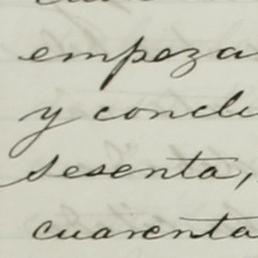 empeza
y conclu
sesenta,
cuarenta